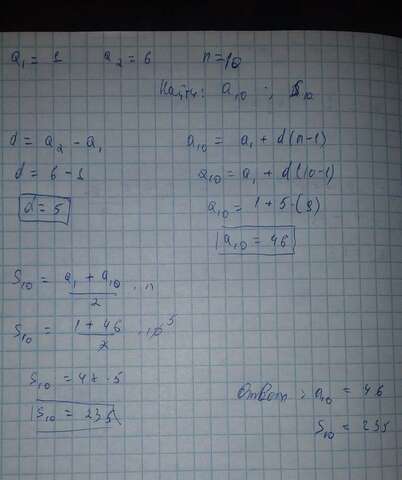 a₁ = 1 a₂ = 6 n = 10
Найти: a₁₀ ; S₁₀
d = a₂ - a₁
d = 6 - 1
d = 5
a₁₀ = a₁ + d(n-1)
a₁₀ = a₁ + d(10-1)
a₁₀ = 1 + 5·(9)
a₁₀ = 46
S₁₀ = (a₁ + a₁₀)/2 · n
S₁₀ = (1 + 46)/2 · 10 5
S₁₀ = 47 · 5
S₁₀ = 235
Ответ: a₁₀ = 46
S₁₀ = 235